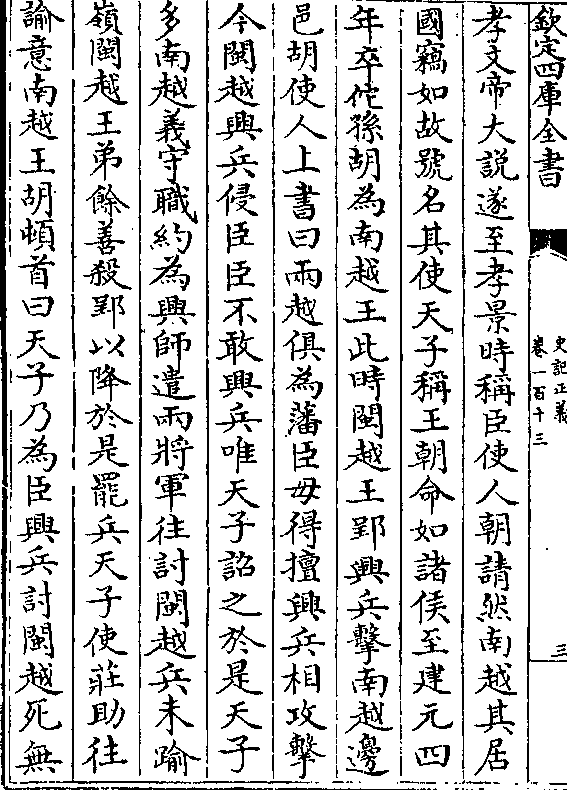 欽定四庫全書
史記正義
卷一百十三
三
孝文帝大説遂至孝景時稱臣使人朝請然南越其居
國竊如故號名其使天子稱王朝命如諸侯至建元四
年卒佗孫胡為南越王此時閩越王郢興兵擊南越邊
邑胡使人上書曰兩越俱為藩臣毋得擅興兵相攻擊
今閩越興兵侵臣臣不敢興兵唯天子詔之於是天子
多南越義守職約為興師遣兩將軍往討閩越兵未踰
嶺閩越王弟餘善殺郢以降於是罷兵天子使莊助往
諭意南越王胡頓首曰天子乃為臣興兵討閩越死無